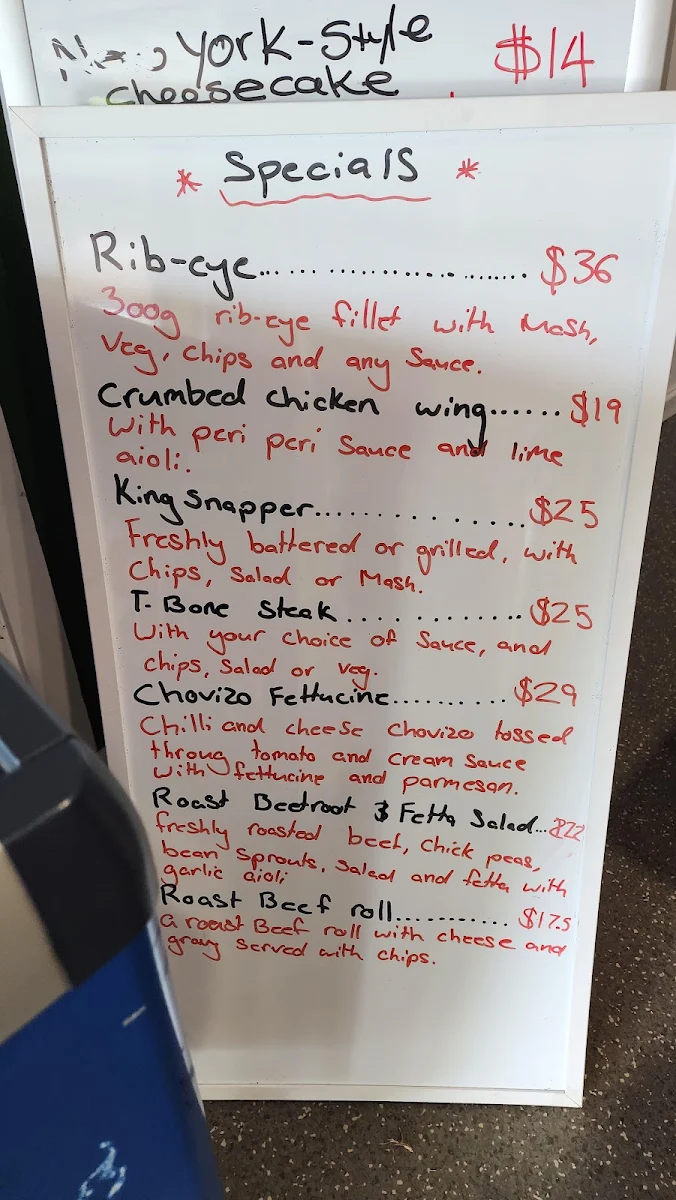 New York-Style $14
cheesecake
* Specials *
Rib-eye................... $36
300g rib-eye fillet with Mash,
Veg, chips and any Sauce.
Crumbed chicken wing...... $19
with peri peri Sauce and lime
aioli.
King Snapper.............. $25
Freshly battered or grilled, with
Chips, Salad or Mash.
T-Bone Steak............ $25
With your choice of Sauce, and
chips, Salad or veg.
Chorizo Fettucine.......... $29
Chilli and cheese Chorizo tossed
throug tomato and cream sauce
with fettucine and parmesan.
Roast Beetroot & Fetta Salad...$22
freshly roasted beet, Chick peas,
bean Sprouts, Salad and fetta with
garlic aioli
Roast Beef roll........... $17.5
a roast Beef roll with cheese and
gravy served with chips.